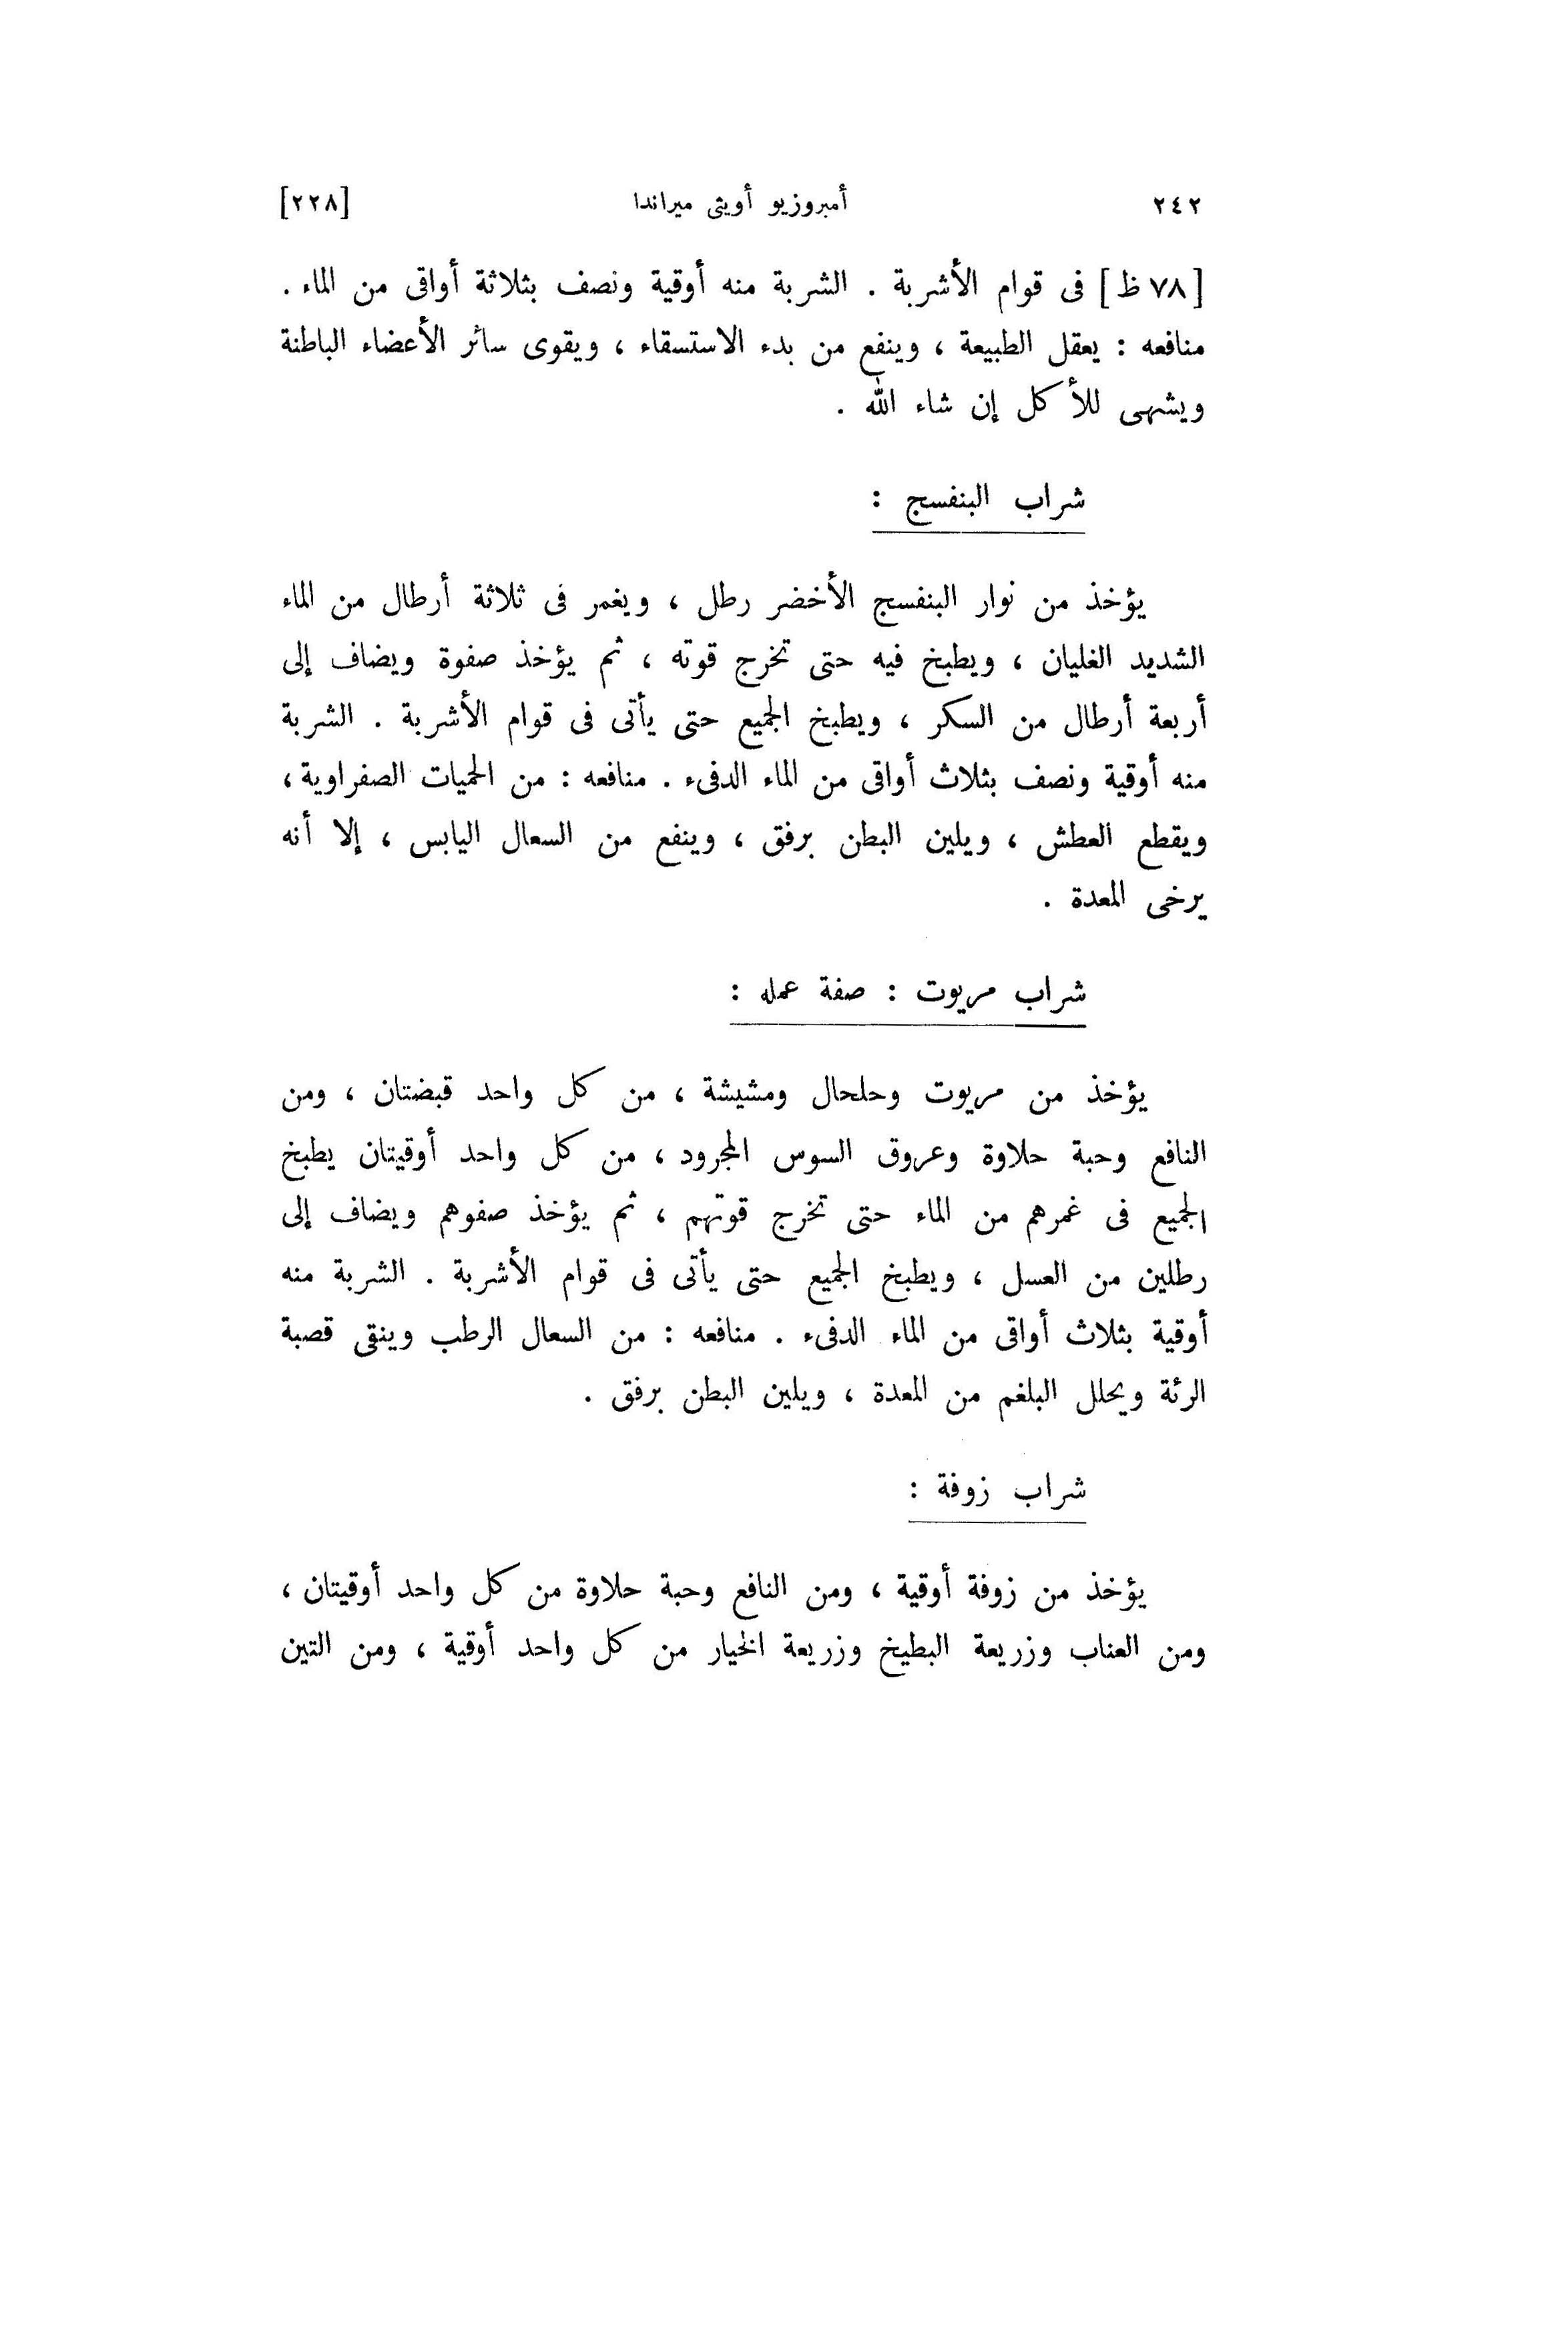 ٢٤٢ أمبروزيو أويثى ميراندا [٢٢٨]
[٧٨ ظ] فى قوام الأشربة . الشربة منه أوقية ونصف بثلاثة أواقى من الماء .
منافعه : يعقل الطبيعة ، وينفع من بدء الاستسقاء ، ويقوى سائر الأعضاء الباطنة
ويشهى للأكل إن شاء الله .
شراب البنفسج :
يؤخذ من نوار البنفسج الأخضر رطل ، ويغمر فى ثلاثة أرطال من الماء
الشديد الغليان ، ويطبخ فيه حتى تخرج قوته ، ثم يؤخذ صفوة ويضاف إلى
أربعة أرطال من السكر ، ويطبخ الجميع حتى يأتى فى قوام الأشربة . الشربة
منه أوقية ونصف بثلاث أواقى من الماء الدفىء . منافعه : من الحميات الصفراوية ،
ويقطع العطش ، ويلين البطن برفق ، وينفع من السعال اليابس ، إلا أنه
يرخى المعدة .
شراب مريوت : صفة عمله :
يؤخذ من مريوت وحلحال ومشيشة ، من كل واحد قبضتان ، ومن
النافع وحبة حلاوة وعروق السوس المجرود ، من كل واحد أوقيتان يطبخ
الجميع فى غمرهم من الماء حتى تخرج قوتهم ، ثم يؤخذ صفوهم ويضاف إلى
رطلين من العسل ، ويطبخ الجميع حتى يأتى فى قوام الأشربة . الشربة منه
أوقية بثلاث أواقى من الماء الدفىء . منافعه : من السعال الرطب وينقى قصبة
الرئة ويحلل البلغم من المعدة ، ويلين البطن برفق .
شراب زوفة :
يؤخذ من زوفة أوقية ، ومن النافع وحبة حلاوة من كل واحد أوقيتان ،
ومن العناب وزريعة البطيخ وزريعة الخيار من كل واحد أوقية ، ومن التين